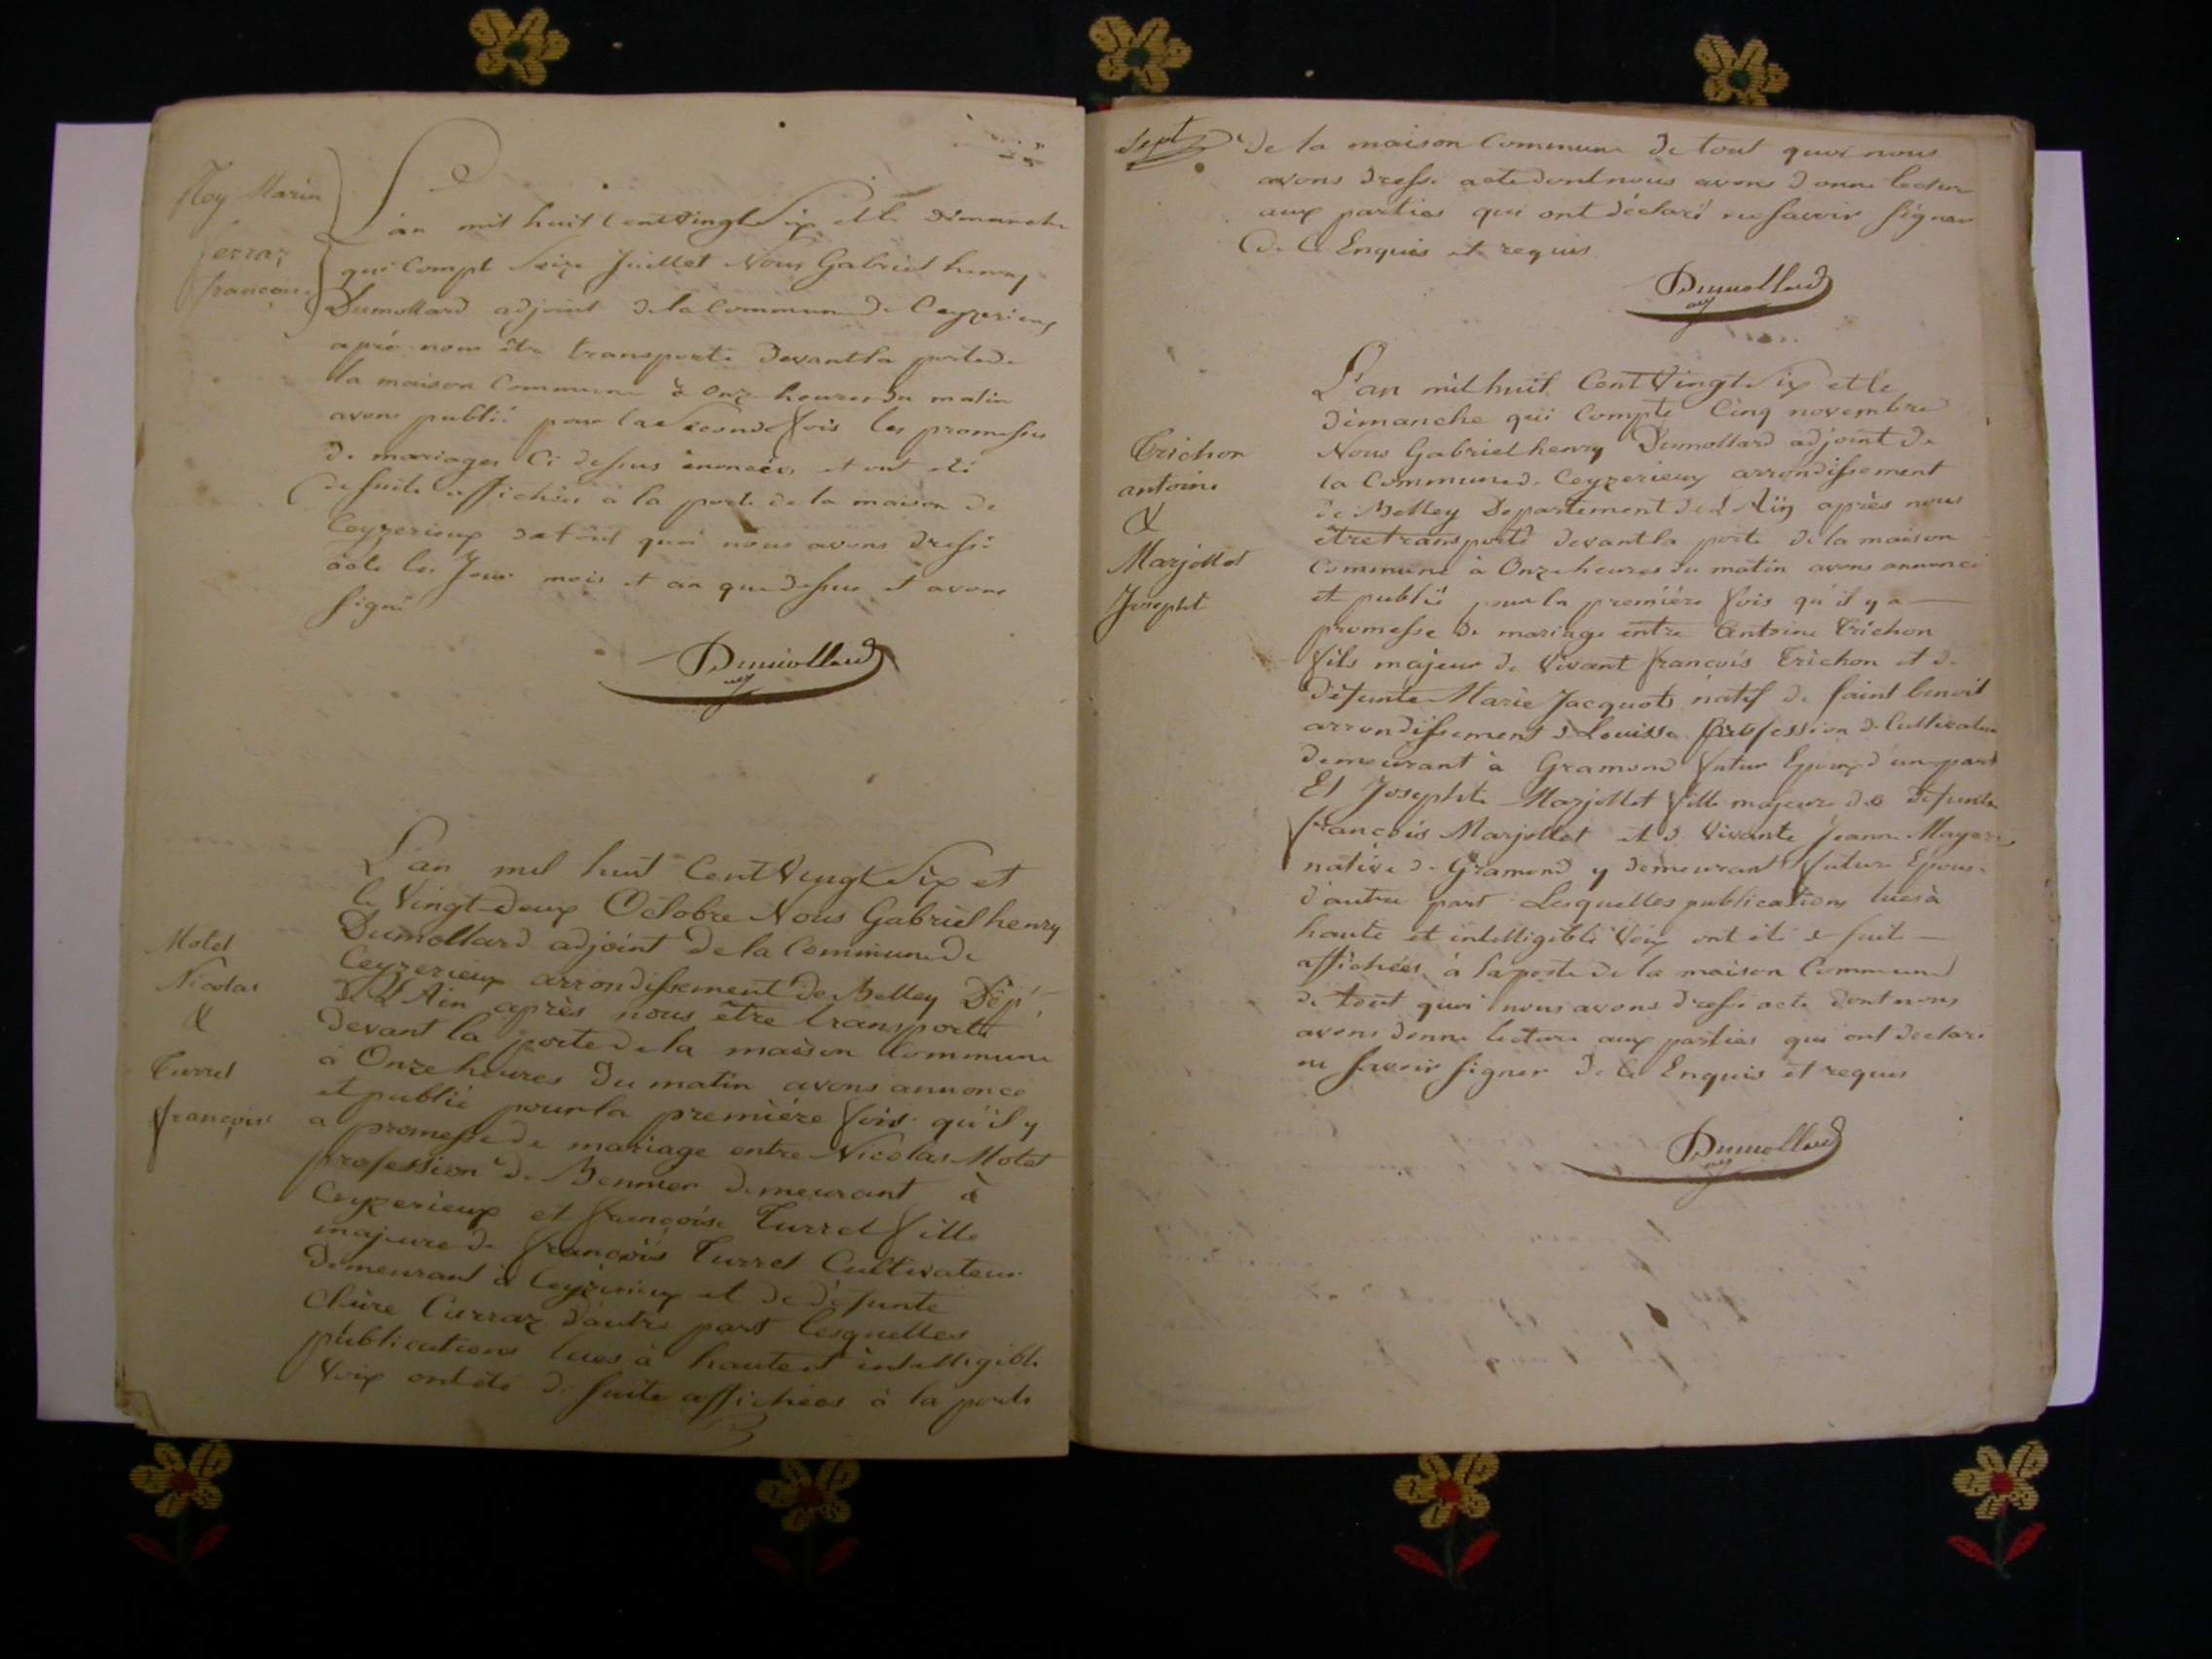 Marin
ferraz
francoise
L'an mil huit Cent Vingt Six et le dimanche
qui Compt Seize Juillet Nous Gabriel henry
Dumollard adjoint de la Commune de Ceyzerieux
aprè nous être transporté devant la porte de
la maison Commune à Onze heures du matin
avons publié pour la Seconde fois les promesses
de mariages Ci dessus énoncées et ont été
de suite affichées à la porte de la maison de
Ceyzerieux de tout quoi nous avons dressé
acte les Jour mois et an que dessus et avons
signé
Dumollard
adj
Motet
Nicolas
&
Turrel
françoise
L'an mil huit Cent Vingt Six et
le Vingt deux Octobre Nous Gabriel henry
Dumollard adjoint de la Commune de
Ceyzerieux arrondissement de Belley Dép.t
de L'Ain après nous être transporté
devant la porte de la maison Commune
à Onze heures du matin avons annoncé
et publié pour la première fois qu'il y
a promesse de mariage entre Nicolas Motet
profession de demeurant à
Ceyzerieux et françoise Turrel fille
majeure de françois Turrel Cultivateur
demeurant à Ceyzerieux et de défunte
Claire Curraz d'autre part lesquelles
publications lues à haute et intelligible
Voix ont été de suite affichées à la porte
Sept
de la maison Commune de tout quoi nous
avons dressé acte dont nous avons donné lecture
aux parties qui ont déclaré ne savoir signer
de Ce Enquis et requis
Dumollard
adj
Trichon
antoine
&
Marjollet
Josephte
L'an mil huit Cent Vingt Six et le
dimanche qui Compte Cinq novembre
Nous Gabriel henry Dumollard adjoint de
la Commune de Ceyzerieux arrondissement
de Belley Departement de L'Ain après nous
être transporté devant la porte de la maison
Commune à Onze heures du matin avons annoncé
et publié pour la première fois qu'il y a
promesse de mariage entre Antoine Trichon
fils majeur de Vivant françois Trichon et de
défunte Marie Jacquots natif de saint benoit
arrondissement profession de Cultivateur
demeurant à Gramond futur Epoux d'une part
Et Josephte Marjollet fille majeure de défunt
françois Marjollet et de Vivante Jeanne
native de Gramond y demeurant future Epouse
d'autre part Lesquelles publications lues à
haute et intelligible Voix ont été de suit
affichées à la porte de la maison Commune
de tout quoi nous avons dressé acte dont nous
avons donné lecture aux parties qui ont déclaré
ne savoir signer de Ce Enquis et requis
Dumollard
adj